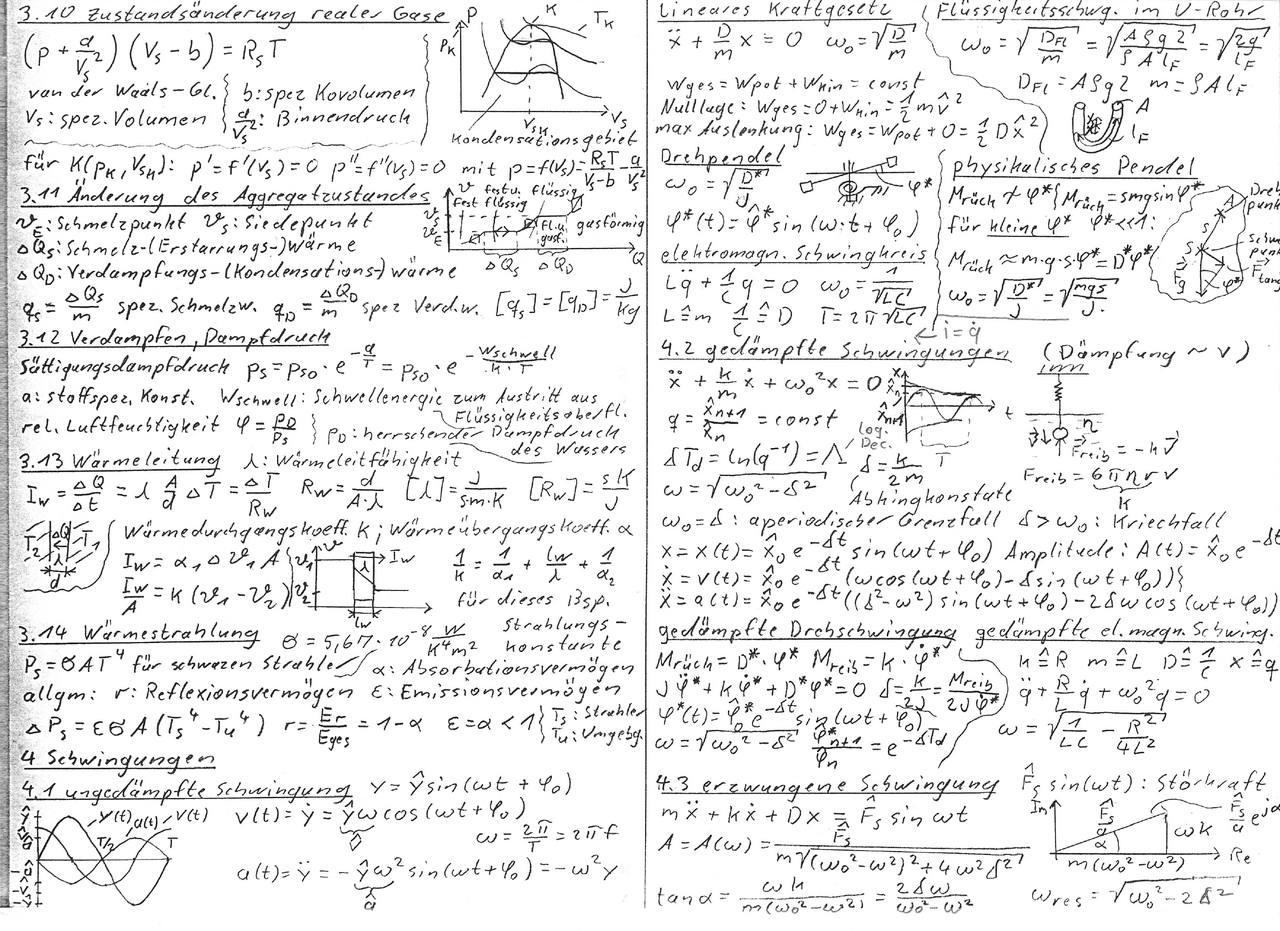 3.10 Zustandsänderung realer Gase
(p + a/Vs²) (Vs - b) = Rs T
van der Waals-Gl.
b: spez Kovolumen
Vs: spez. Volumen
a/Vs²: Binnendruck
p
pK
K
TK
VSK
Vs
Kondensationsgebiet
für K(pK, VSK): p' = f'(Vs) = 0 p'' = f''(Vs) = 0 mit p = f(Vs) = RsT/(Vs-b) - a/Vs²
3.11 Änderung des Aggregatzustandes
ϑE: Schmelzpunkt ϑs: Siedepunkt
ΔQs: Schmelz-(Erstarrungs-)wärme
ΔQD: Verdampfungs-(Kondensations-)wärme
ϑ
fest
fest u. flüssig
flüssig
ϑs
ϑE
Fl. u. gasf.
gasförmig
Q
ΔQs ΔQD
qs = ΔQs/m spez. Schmelzw. qD = ΔQD/m spez Verd.w. [qs] = [qD] = J/kg
3.12 Verdampfen, Dampfdruck
Sättigungsdampfdruck ps = ps0 · e^(-a/T) = ps0 · e^(-Wschwell/(k·T))
a: stoffspez. Konst. Wschwell: Schwellenergie zum Austritt aus
Flüssigkeitsoberfl.
rel. Luftfeuchtigkeit φ = pD/ps
pD: herrschender Dampfdruck
des Wassers
3.13 Wärmeleitung λ: Wärmeleitfähigkeit
Iw = ΔQ/Δt = λ A/d ΔT = ΔT/Rw Rw = d/(A·λ) [λ] = J/(s·m·K) [Rw] = sK/J
T2
ΔQ
λ
T1
d
Wärmedurchgangskoeff. k; Wärmeübergangskoeff. α
Iw = α1 Δϑ1 A
Iw/A = k(ϑ1 - ϑ2)
ϑ
ϑ1
ϑ2
λ
Iw
lw
1/k = 1/α1 + lw/λ + 1/α2
für dieses Bsp.
3.14 Wärmestrahlung σ = 5,67 · 10⁻⁸ W/(K⁴m²)
Strahlungs-
konstante
Ps = σAT⁴ für schwazen Strahler
α: Absorbationsvermögen
allgm: r: Reflexionsvermögen ε: Emissionsvermögen
ΔPs = εσA(Ts⁴ - Tu⁴) r = Er/Eges = 1 - α ε = α < 1
Ts: Strahler
Tu: Umgebg.
4 Schwingungen
4.1 ungedämpfte Schwingung y = ŷ sin(ωt + φ0)
y(t) a(t) v(t)
T/2
T
v(t) = ẏ = ŷω cos(ωt + φ0)
v̂
ω = 2π/T = 2πf
a(t) = ÿ = -ŷω² sin(ωt + φ0) = -ω²y
â
Lineares Kraftgesetz
ẍ + D/m x = 0 ω0 = √(D/m)
Wges = Wpot + Wkin = const
Nulllage: Wges = 0 + Wkin = ½ m v̂²
max Auslenkung: Wges = Wpot + 0 = ½ D x̂²
Flüssigkeitsschwg. im U-Rohr
ω0 = √(DFl/m) = √(Aρg2/(ρAlF)) = √(2g/lF)
DFl = Aρg2 m = ρAlF
A
lF
Drehpendel
ω0 = √(D*/J)
φ*
φ*(t) = φ̂* sin(ω·t + φ0)
physikalisches Pendel
Mrück ~ φ*
Mrück = smg sin φ*
für kleine φ* φ* << 1:
Mrück ≈ m·g·s·φ* = D*φ*
ω0 = √(D*/J) = √(mgs/J)
A
s
S
Fg
φ*
Ftang
elektromagn. Schwingkreis
Lq̈ + 1/C q = 0 ω0 = 1/√(LC)
L ≙ m 1/C ≙ D T = 2π√(LC)
i = q̇
4.2 gedämpfte Schwingungen (Dämpfung ~ v)
ẍ + k/m ẋ + ω0²x = 0
q = x̂n+1/x̂n = const
x
x̂n
x̂n+1
t
T
δTd = ln(q⁻¹) = Λ
log. Dec.
δ = k/2m
ω = √(ω0² - δ²)
Abhingkonstate
η
FReib = -kv
FReib = 6πηrv
k
ω0 = δ: aperiodischer Grenzfall δ > ω0: Kriechfall
x = x(t) = x̂0 e^(-δt) sin(ωt + φ0) Amplitude: A(t) = x̂0 e^(-δt)
ẋ = v(t) = x̂0 e^(-δt) (ω cos(ωt + φ0) - δ sin(ωt + φ0))
ẍ = a(t) = x̂0 e^(-δt) ((δ² - ω²) sin(ωt + φ0) - 2δω cos(ωt + φ0))
gedämpfte Drehschwingung
Mrück = D*·φ* Mreib = k·φ̇*
Jφ̈* + kφ̇* + D*φ* = 0 δ = k/2J = Mreib/(2Jφ̇*)
φ*(t) = φ̂0* e^(-δt) sin(ωt + φ0)
ω = √(ω0² - δ²) φ̂*n+1/φ̂n = e^(-δTd)
gedämpfte el.magn. Schwing.
k ≙ R m ≙ L D ≙ 1/C x ≙ q
q̈ + R/L q̇ + ω0²q = 0
ω = √(1/LC - R²/4L²)
4.3 erzwungene Schwingung F̂s sin(ωt): Störkraft
mẍ + kẋ + Dx = F̂s sin ωt
A = A(ω) = F̂s/(m√((ω0² - ω²)² + 4ω²δ²))
tan α = ωk/(m(ω0² - ω²)) = 2δω/(ω0² - ω²)
Im
F̂s/a
α
ωk
m(ω0² - ω²)
Re
ωres = √(ω0² - 2δ²)